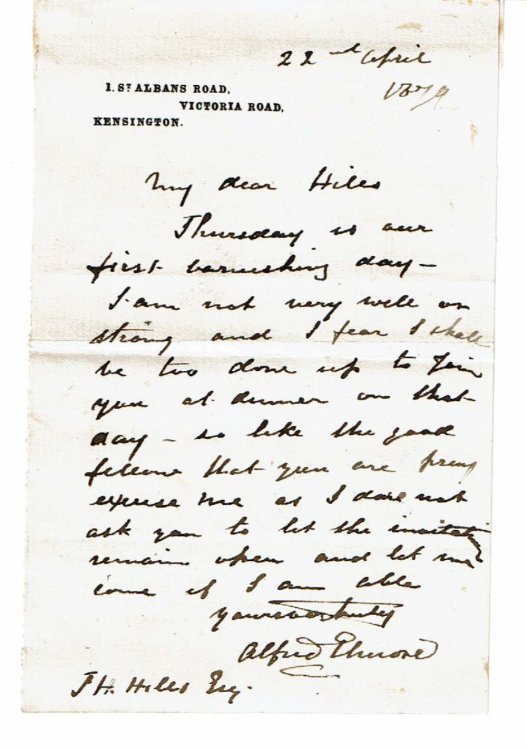 22nd April
1879
1. ST ALBANS ROAD,
VICTORIA ROAD,
KENSINGTON.
My dear Hiles
Thursday is our
first varnishing day -
I am not very well or
strong and I fear I shall
be too done up to Join
you at dinner on that
day - so like the good
fellow that you are pray
excuse me as I dare not
ask you to let the invitation
remain open and let me
come if I am able
yours truly
Alfred Elmore
J H. Hiles Esq.